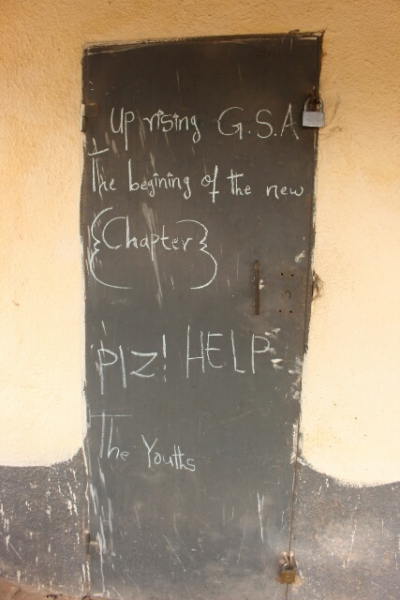 Up rising G.S.A
The begining of the new
{Chapter}
plz! HELP
The Youths